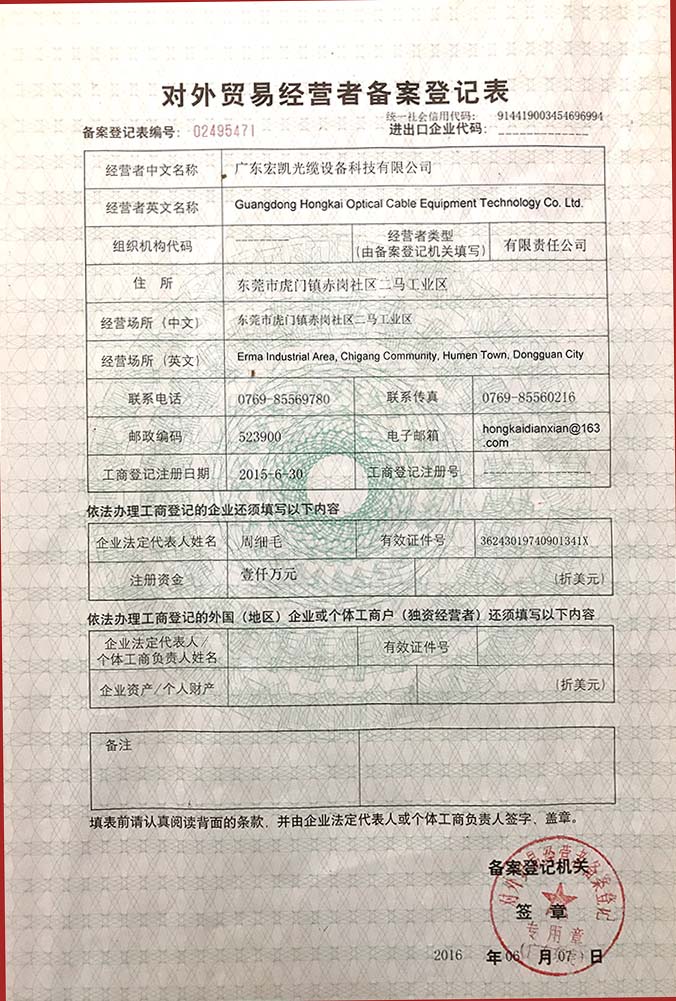 对外贸易经营者备案登记表
统一社会信用代码： 914419003454696994
备案登记表编号： 02495471 进出口企业代码： -------------
经营者中文名称 广东宏凯光缆设备科技有限公司
经营者英文名称 Guangdong Hongkai Optical Cable Equipment Technology Co. Ltd.
组织机构代码 --------- 经营者类型 (由备案登记机关填写) 有限责任公司
住 所 东莞市虎门镇赤岗社区二马工业区
经营场所（中文） 东莞市虎门镇赤岗社区二马工业区
经营场所（英文） Erma Industrial Area, Chigang Community, Humen Town, Dongguan City
联系电话 0769-85569780 联系传真 0769-85560216
邮政编码 523900 电子邮箱 hongkaidianxian@163.com
工商登记注册日期 2015-6-30 工商登记注册号 ------------------
依法办理工商登记的企业还须填写以下内容
企业法定代表人姓名 周细毛 有效证件号 36243019740901341X
注册资金 壹仟万元 (折美元)
依法办理工商登记的外国（地区）企业或个体工商户（独资经营者）还须填写以下内容
企业法定代表人/
个体工商负责人姓名 有效证件号
企业资产/个人财产 (折美元)
备注
填表前请认真阅读背面的条款，并由企业法定代表人或个体工商负责人签字、盖章。
备案登记机关
签 章
对外贸易经营者备案登记
专用章
2016 年 06 月 07 日